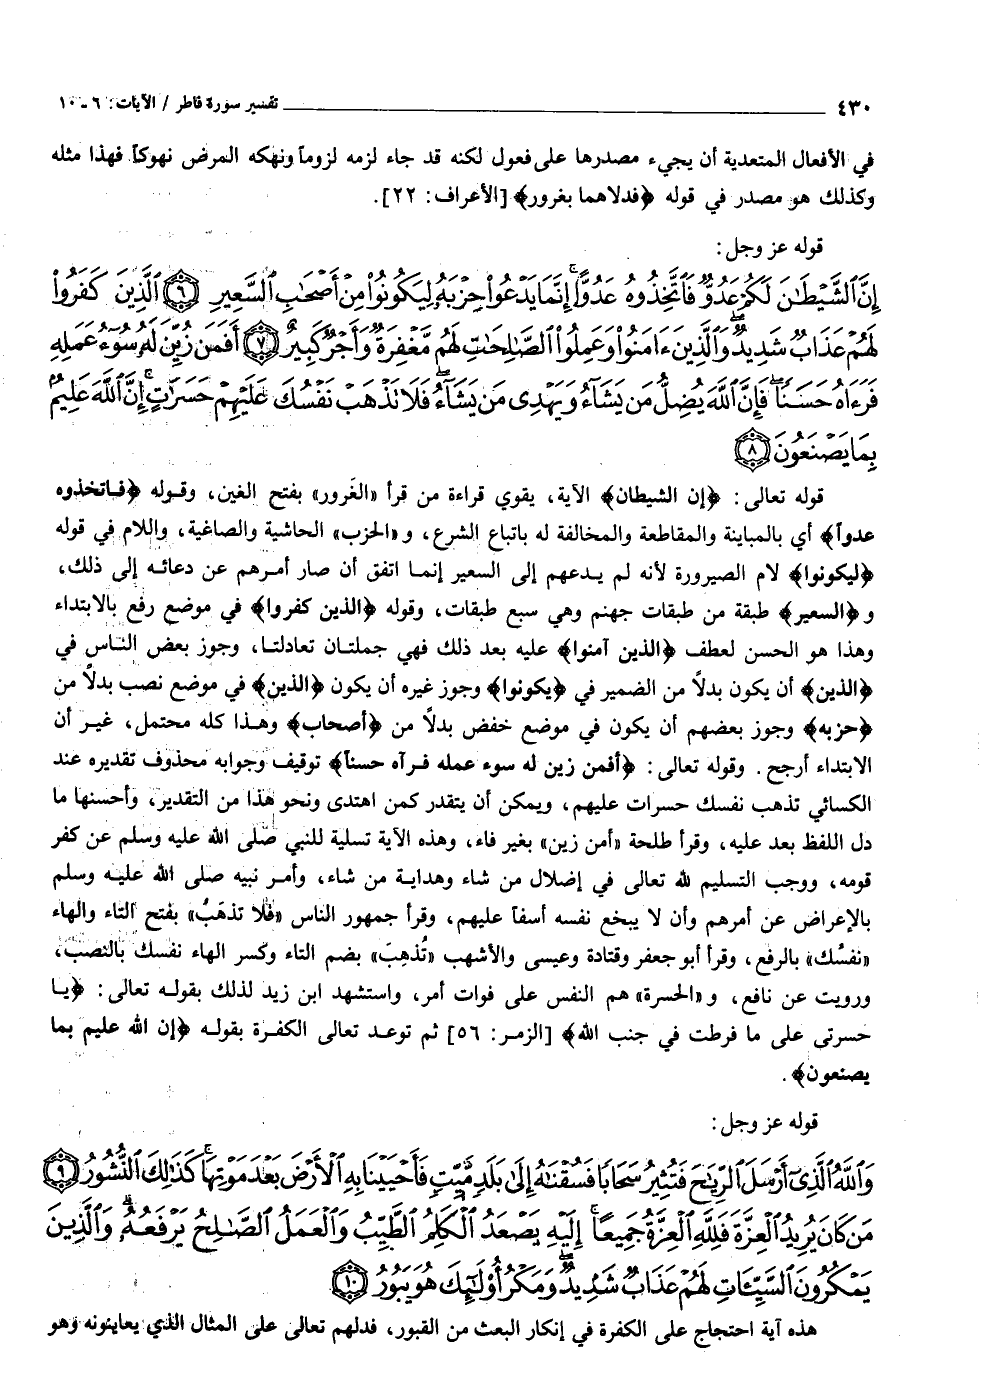 ٤٣٠ تفسير سورة فاطر / الآيات: ٦ ـ ١٠
في الأفعال المتعدية أن يجيء مصدرها على فعول لكنه قد جاء لزمه لزوماً ونهكه المرض نهوكاً فهذا مثله
وكذلك هو مصدر في قوله ﴿فدلاهما بغرور﴾ [الأعراف: ٢٢].
قوله عز وجل:
إِنَّ ٱلشَّيْطَٰنَ لَكُمْ عَدُوٌّ فَٱتَّخِذُوهُ عَدُوًّا ۚ إِنَّمَا يَدْعُوا۟ حِزْبَهُۥ لِيَكُونُوا۟ مِنْ أَصْحَٰبِ ٱلسَّعِيرِ ﴿٦﴾ ٱلَّذِينَ كَفَرُوا۟
لَهُمْ عَذَابٌ شَدِيدٌ ۖ وَٱلَّذِينَ ءَامَنُوا۟ وَعَمِلُوا۟ ٱلصَّٰلِحَٰتِ لَهُم مَّغْفِرَةٌ وَأَجْرٌ كَبِيرٌ ﴿٧﴾ أَفَمَن زُيِّنَ لَهُۥ سُوٓءُ عَمَلِهِۦ
فَرَءَاهُ حَسَنًا ۖ فَإِنَّ ٱللَّهَ يُضِلُّ مَن يَشَآءُ وَيَهْدِى مَن يَشَآءُ ۖ فَلَا تَذْهَبْ نَفْسُكَ عَلَيْهِمْ حَسَرَٰتٍ ۚ إِنَّ ٱللَّهَ عَلِيمٌۢ
بِمَا يَصْنَعُونَ ﴿٨﴾
قوله تعالى: ﴿إن الشيطان﴾ الآية، يقوي قراءة من قرأ «الغَرور» بفتح الغين، وقوله ﴿فاتخذوه
عدواً﴾ أي بالمباينة والمقاطعة والمخالفة له باتباع الشرع، و «الحزب» الحاشية والصاغية، واللام في قوله
﴿ليكونوا﴾ لام الصيرورة لأنه لم يدعهم إلى السعير إنما اتفق أن صار أمرهم عن دعائه إلى ذلك،
و ﴿السعير﴾ طبقة من طبقات جهنم وهي سبع طبقات، وقوله ﴿الذين كفروا﴾ في موضع رفع بالابتداء
وهذا هو الحسن لعطف ﴿الذين آمنوا﴾ عليه بعد ذلك فهي جملتان تعادلتا، وجوز بعض الناس في
﴿الذين﴾ أن يكون بدلاً من الضمير في ﴿يكونوا﴾ وجوز غيره أن يكون ﴿الذين﴾ في موضع نصب بدلاً من
﴿حزبه﴾ وجوز بعضهم أن يكون في موضع خفض بدلاً من ﴿أصحاب﴾ وهذا كله محتمل، غير أن
الابتداء أرجح. وقوله تعالى: ﴿أفمن زين له سوء عمله فرآه حسناً﴾ توقيف وجوابه محذوف تقديره عند
الكسائي تذهب نفسك حسرات عليهم، ويمكن أن يتقدر كمن اهتدى ونحو هذا من التقدير، وأحسنها ما
دل اللفظ بعد عليه، وقرأ طلحة «أمن زين» بغير فاء، وهذه الآية تسلية للنبي صلى الله عليه وسلم عن كفر
قومه، ووجب التسليم لله تعالى في إضلال من شاء وهداية من شاء، وأمر نبيه صلى الله عليه وسلم
بالإعراض عن أمرهم وأن لا يبخع نفسه أسفاً عليهم، وقرأ جمهور الناس «فلا تذهَبْ» بفتح التاء والهاء
«نفسُك» بالرفع، وقرأ أبو جعفر وقتادة وعيسى والأشهب «تُذهِبَ» بضم التاء وكسر الهاء نفسك بالنصب،
ورويت عن نافع، و «الحسرة» هم النفس على فوات أمر، واستشهد ابن زيد لذلك بقوله تعالى: ﴿يا
حسرتى على ما فرطت في جنب الله﴾ [الزمر: ٥٦] ثم توعد تعالى الكفرة بقوله ﴿إن الله عليم بما
يصنعون﴾.
قوله عز وجل:
وَٱللَّهُ ٱلَّذِىٓ أَرْسَلَ ٱلرِّيَٰحَ فَتُثِيرُ سَحَابًا فَسُقْنَٰهُ إِلَىٰ بَلَدٍ مَّيِّتٍ فَأَحْيَيْنَا بِهِ ٱلْأَرْضَ بَعْدَ مَوْتِهَا ۚ كَذَٰلِكَ ٱلنُّشُورُ ﴿٩﴾
مَن كَانَ يُرِيدُ ٱلْعِزَّةَ فَلِلَّهِ ٱلْعِزَّةُ جَمِيعًا ۚ إِلَيْهِ يَصْعَدُ ٱلْكَلِمُ ٱلطَّيِّبُ وَٱلْعَمَلُ ٱلصَّٰلِحُ يَرْفَعُهُۥ ۚ وَٱلَّذِينَ
يَمْكُرُونَ ٱلسَّيِّـَٔاتِ لَهُمْ عَذَابٌ شَدِيدٌ ۖ وَمَكْرُ أُو۟لَٰٓئِكَ هُوَ يَبُورُ ﴿١٠﴾
هذه آية احتجاج على الكفرة في إنكار البعث من القبور، فدلهم تعالى على المثال الذي يعاينونه وهو